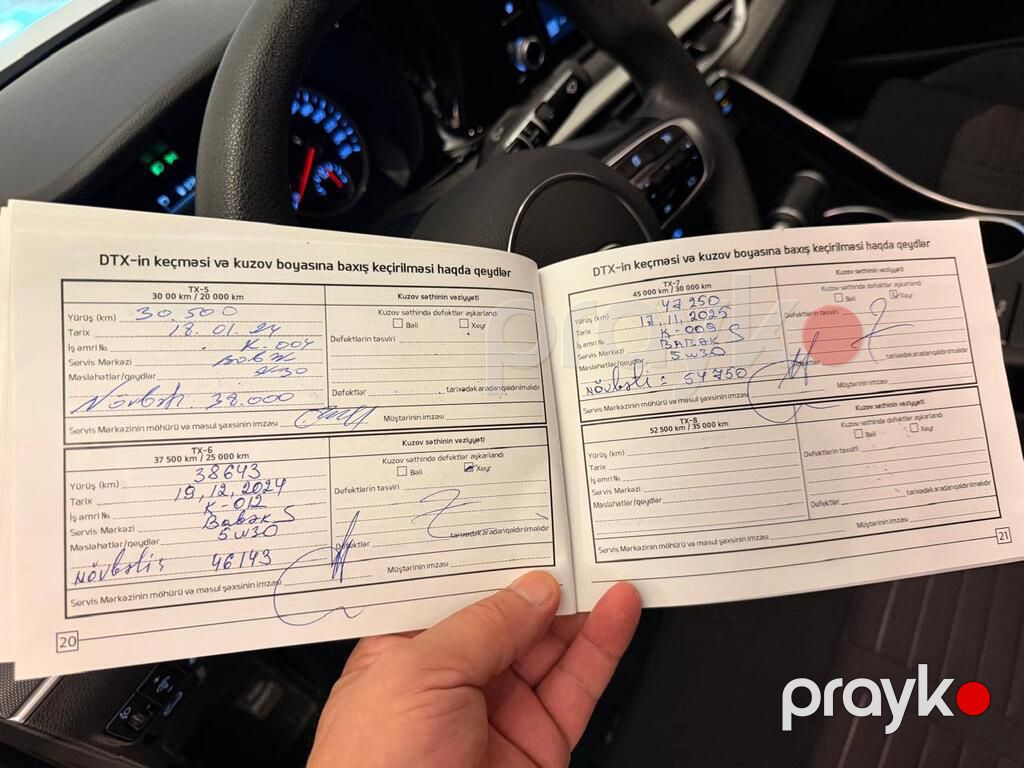 DTX-in keçməsi və kuzov boyasına baxış keçirilməsi haqda qeydlər
TX-5
30 00 km / 20 000 km
Yürüş (km) 30.500
Tarix 18.01.24
İş əmri №. K-004
Servis Mərkəzi Babək
Məsləhətlər/qeydlər 5w30
Növbəti 38.000
Servis Mərkəzinin möhürü və məsul şəxsinin imzası
Kuzov səthinin vəziyyəti
Kuzov səthində defektlər aşkarlandı
Bəli Xeyr
Defektlərin təsviri
Defektlər tarixədək aradan qaldırılmalıdır
Müştərinin imzası
TX-6
37 500 km / 25 000 km
Yürüş (km) 38643
Tarix 19,12,2024
İş əmri №. K-012
Servis Mərkəzi Babək S
Məsləhətlər/qeydlər 5w30
Növbəti: 46143
Servis Mərkəzinin möhürü və məsul şəxsinin imzası
Kuzov səthinin vəziyyəti
Kuzov səthində defektlər aşkarlandı
Bəli Xeyr
Defektlərin təsviri
Defektlər tarixədək aradan qaldırılmalıdır
Müştərinin imzası
20
DTX-in keçməsi və kuzov boyasına baxış keçirilməsi haqda qeydlər
TX-7
45 000 km / 30 000 km
Yürüş (km) 47250
Tarix 17,11,2025
İş əmri №. K-009
Servis Mərkəzi BABƏK S
Məsləhətlər/qeydlər 5w30
Növbəti: 54750
Servis Mərkəzinin möhürü və məsul şəxsinin imzası
Kuzov səthinin vəziyyəti
Kuzov səthində defektlər aşkarlandı
Bəli Xeyr
Defektlərin təsviri
Defektlər tarixədək aradan qaldırılmalıdır
Müştərinin imzası
TX-8
52 500 km / 35 000 km
Yürüş (km)
Tarix
İş əmri №.
Servis Mərkəzi
Məsləhətlər/qeydlər
Servis Mərkəzinin möhürü və məsul şəxsinin imzası
Kuzov səthinin vəziyyəti
Kuzov səthində defektlər aşkarlandı
Bəli Xeyr
Defektlərin təsviri
Defektlər tarixədək aradan qaldırılmalıdır
Müştərinin imzası
21
prayk
prayk